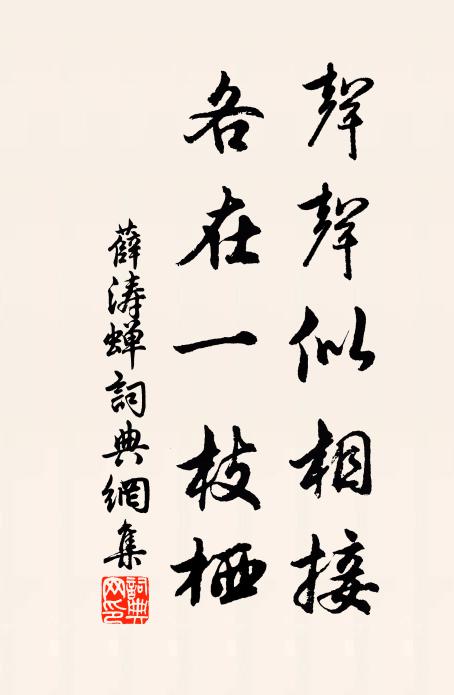 聲聲似相接
各在一枝栖
薛濤蝉詞典網集
詞典网印